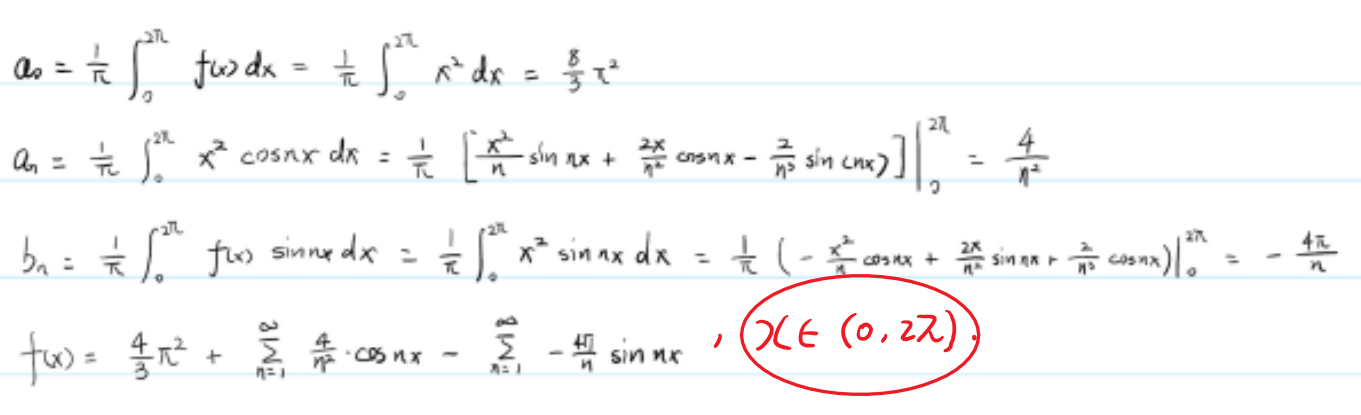 a₀ = 1/π ∫₀^2π f(x) dx = 1/π ∫₀^2π x² dx = 8/3 π²
aₙ = 1/π ∫₀^2π x² cosnx dx = 1/π [x²/n sin nx + 2x/n² cosnx − 2/n³ sin(nx)] |₀^2π = 4/n²
bₙ = 1/π ∫₀^2π f(x) sinnx dx = 1/π ∫₀^2π x² sin nx dx = 1/π (− x²/n cosnx + 2x/n² sin nx + 2/n³ cosnx) |₀^2π = − 4π/n
f(x) = 4/3 π² + ∑_{n=1}^∞ 4/n² · cos nx − ∑_{n=1}^∞ − 4π/n sin nx , x ∈ (0, 2π).